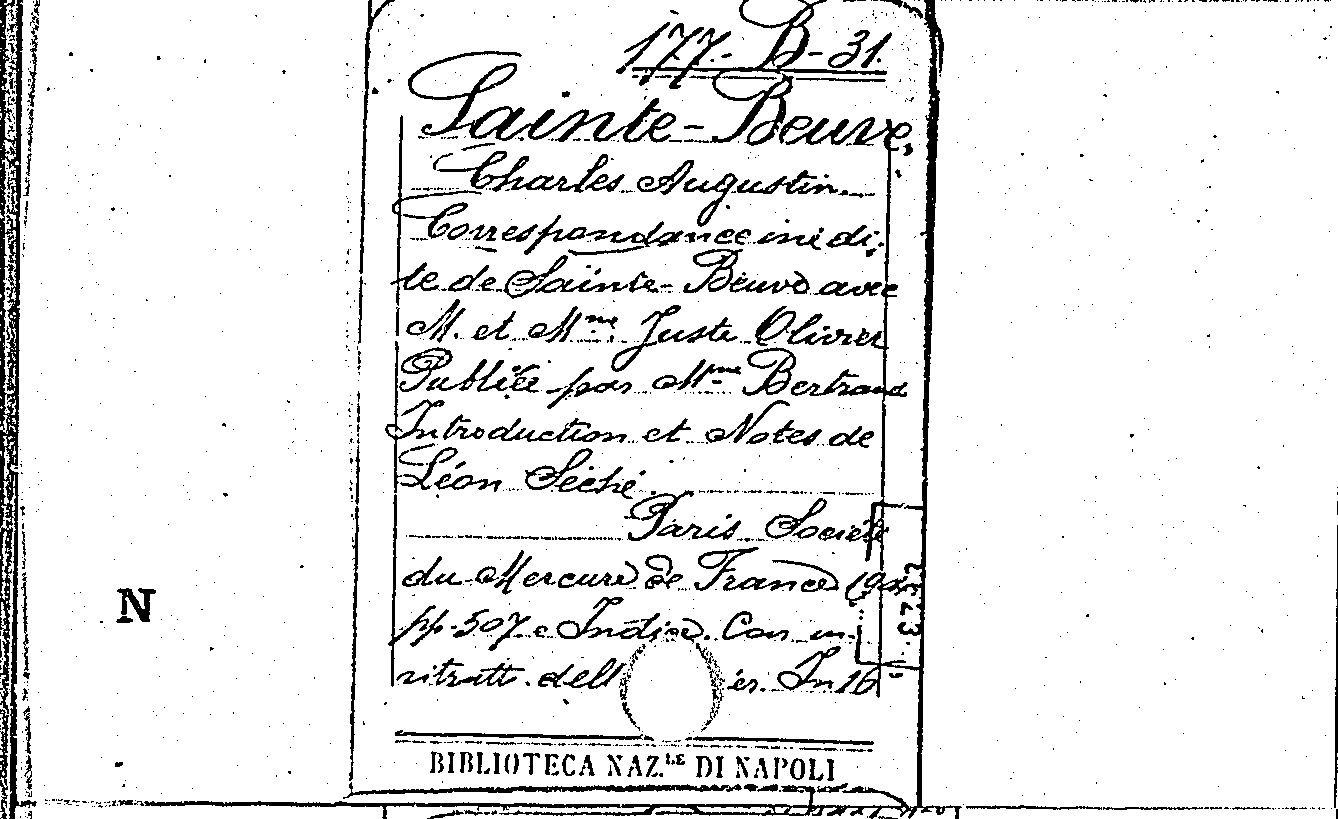 177-B-31.
Sainte-Beuve,
Charles Augustin.
Correspondance inédi-
te de Sainte-Beuve avec
M. et Mme. Juste Olivier
Publiée par Mme Bertrand
Introduction et Notes de
Léon Séché.
Paris Société
du Mercure de France
pp. 507 e Indice. Con un
ritratto dell er. In 16°
N
BIBLIOTECA NAZ.LE DI NAPOLI